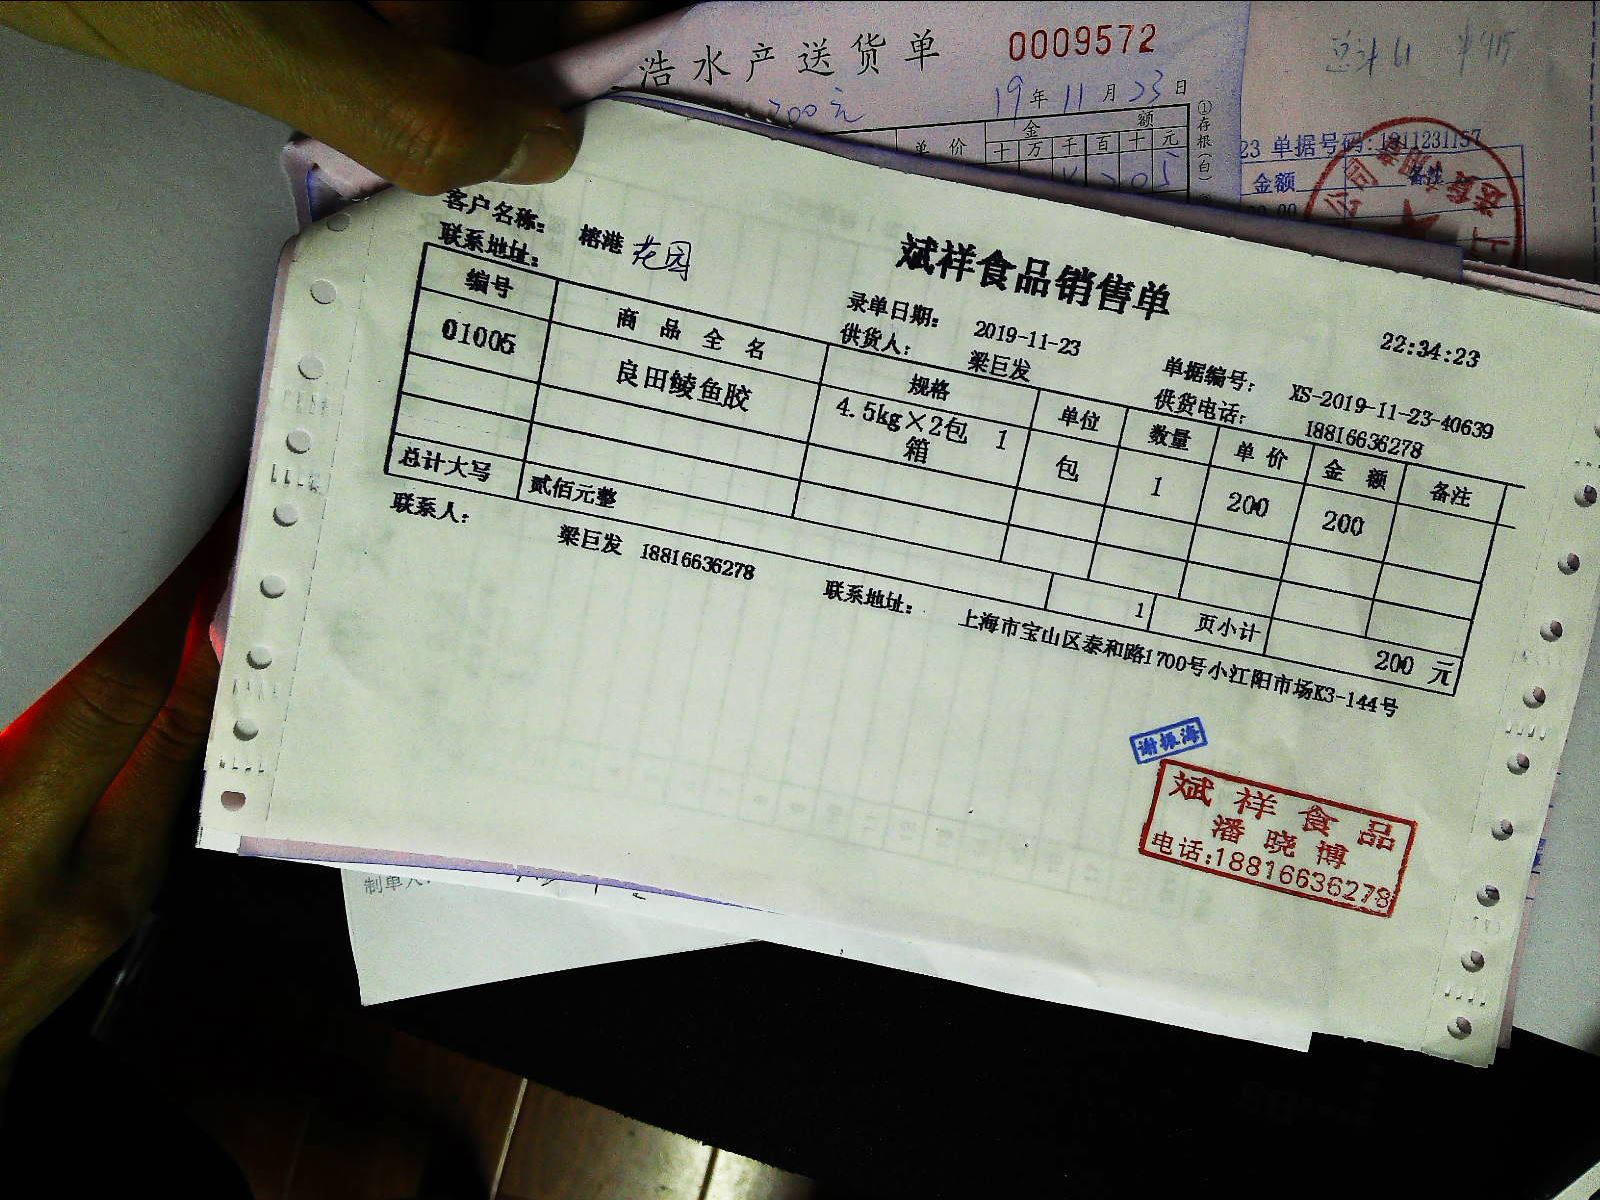 浩水产送货单 0009572
200元 19年11月23日
单价 金额
十万千百十元
①存根(白)
总计 11 ¥915
23 单据号码:1911231157
金额 备注
斌祥食品销售单
客户名称: 榕港 花园 录单日期: 2019-11-23 22:34:23
联系地址: 供货人: 梁巨发 单据编号: XS-2019-11-23-40639
供货电话: 18816636278
编号 商品全名 规格 单位 数量 单价 金额 备注
01005 良田鲮鱼胶 4.5kg×2包 1箱 包 1 200 200
总计大写 贰佰元整 1 页小计 200 元
联系人: 梁巨发 18816636278 联系地址: 上海市宝山区泰和路1700号小江阳市场K3-144号
谢振海
斌祥食品
潘晓博
电话:18816636278
制单人: